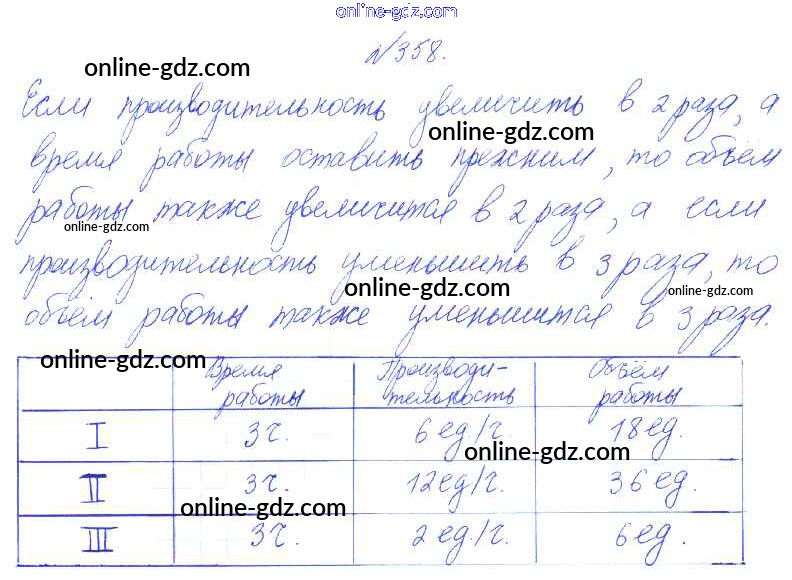 online-gdz.com
№358.
online-gdz.com
Если производительность увеличить в 2 раза, а
online-gdz.com
время работы оставить прежним, то объём
работы также увеличится в 2 раза, а если
online-gdz.com
производительность уменьшить в 3 раза, то
online-gdz.com
online-gdz.com
объём работы также уменьшится в 3 раза.
online-gdz.com
Время работы Производи-тельность Объём работы
I 3 ч. 6 ед./ч. 18 ед.
online-gdz.com
II 3 ч. 12 ед/ч. 36 ед.
online-gdz.com
III 3 ч. 2 ед/ч. 6 ед.